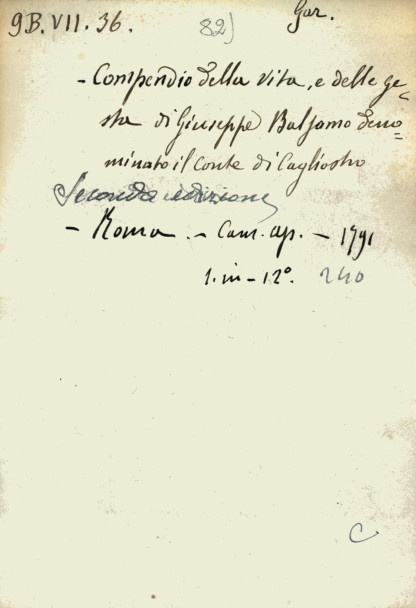 9B. VII. 36. 82) Gar.
- Compendio della vita, e delle ge-
sta di Giuseppe Balsamo deno-
minato il conte di Cagliostro
Seconda edizione
- Roma. - Cam. ap. - 1791
1. in - 12°. 240
C